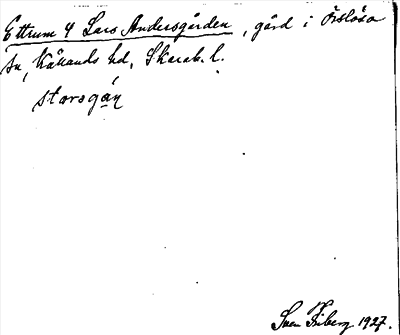 Ettrum 4 Lars Andersgården, gård i Örslösa
sn, Kållands hd, Skarab. l.
storsgáṇ
Sven Friberg 1927.